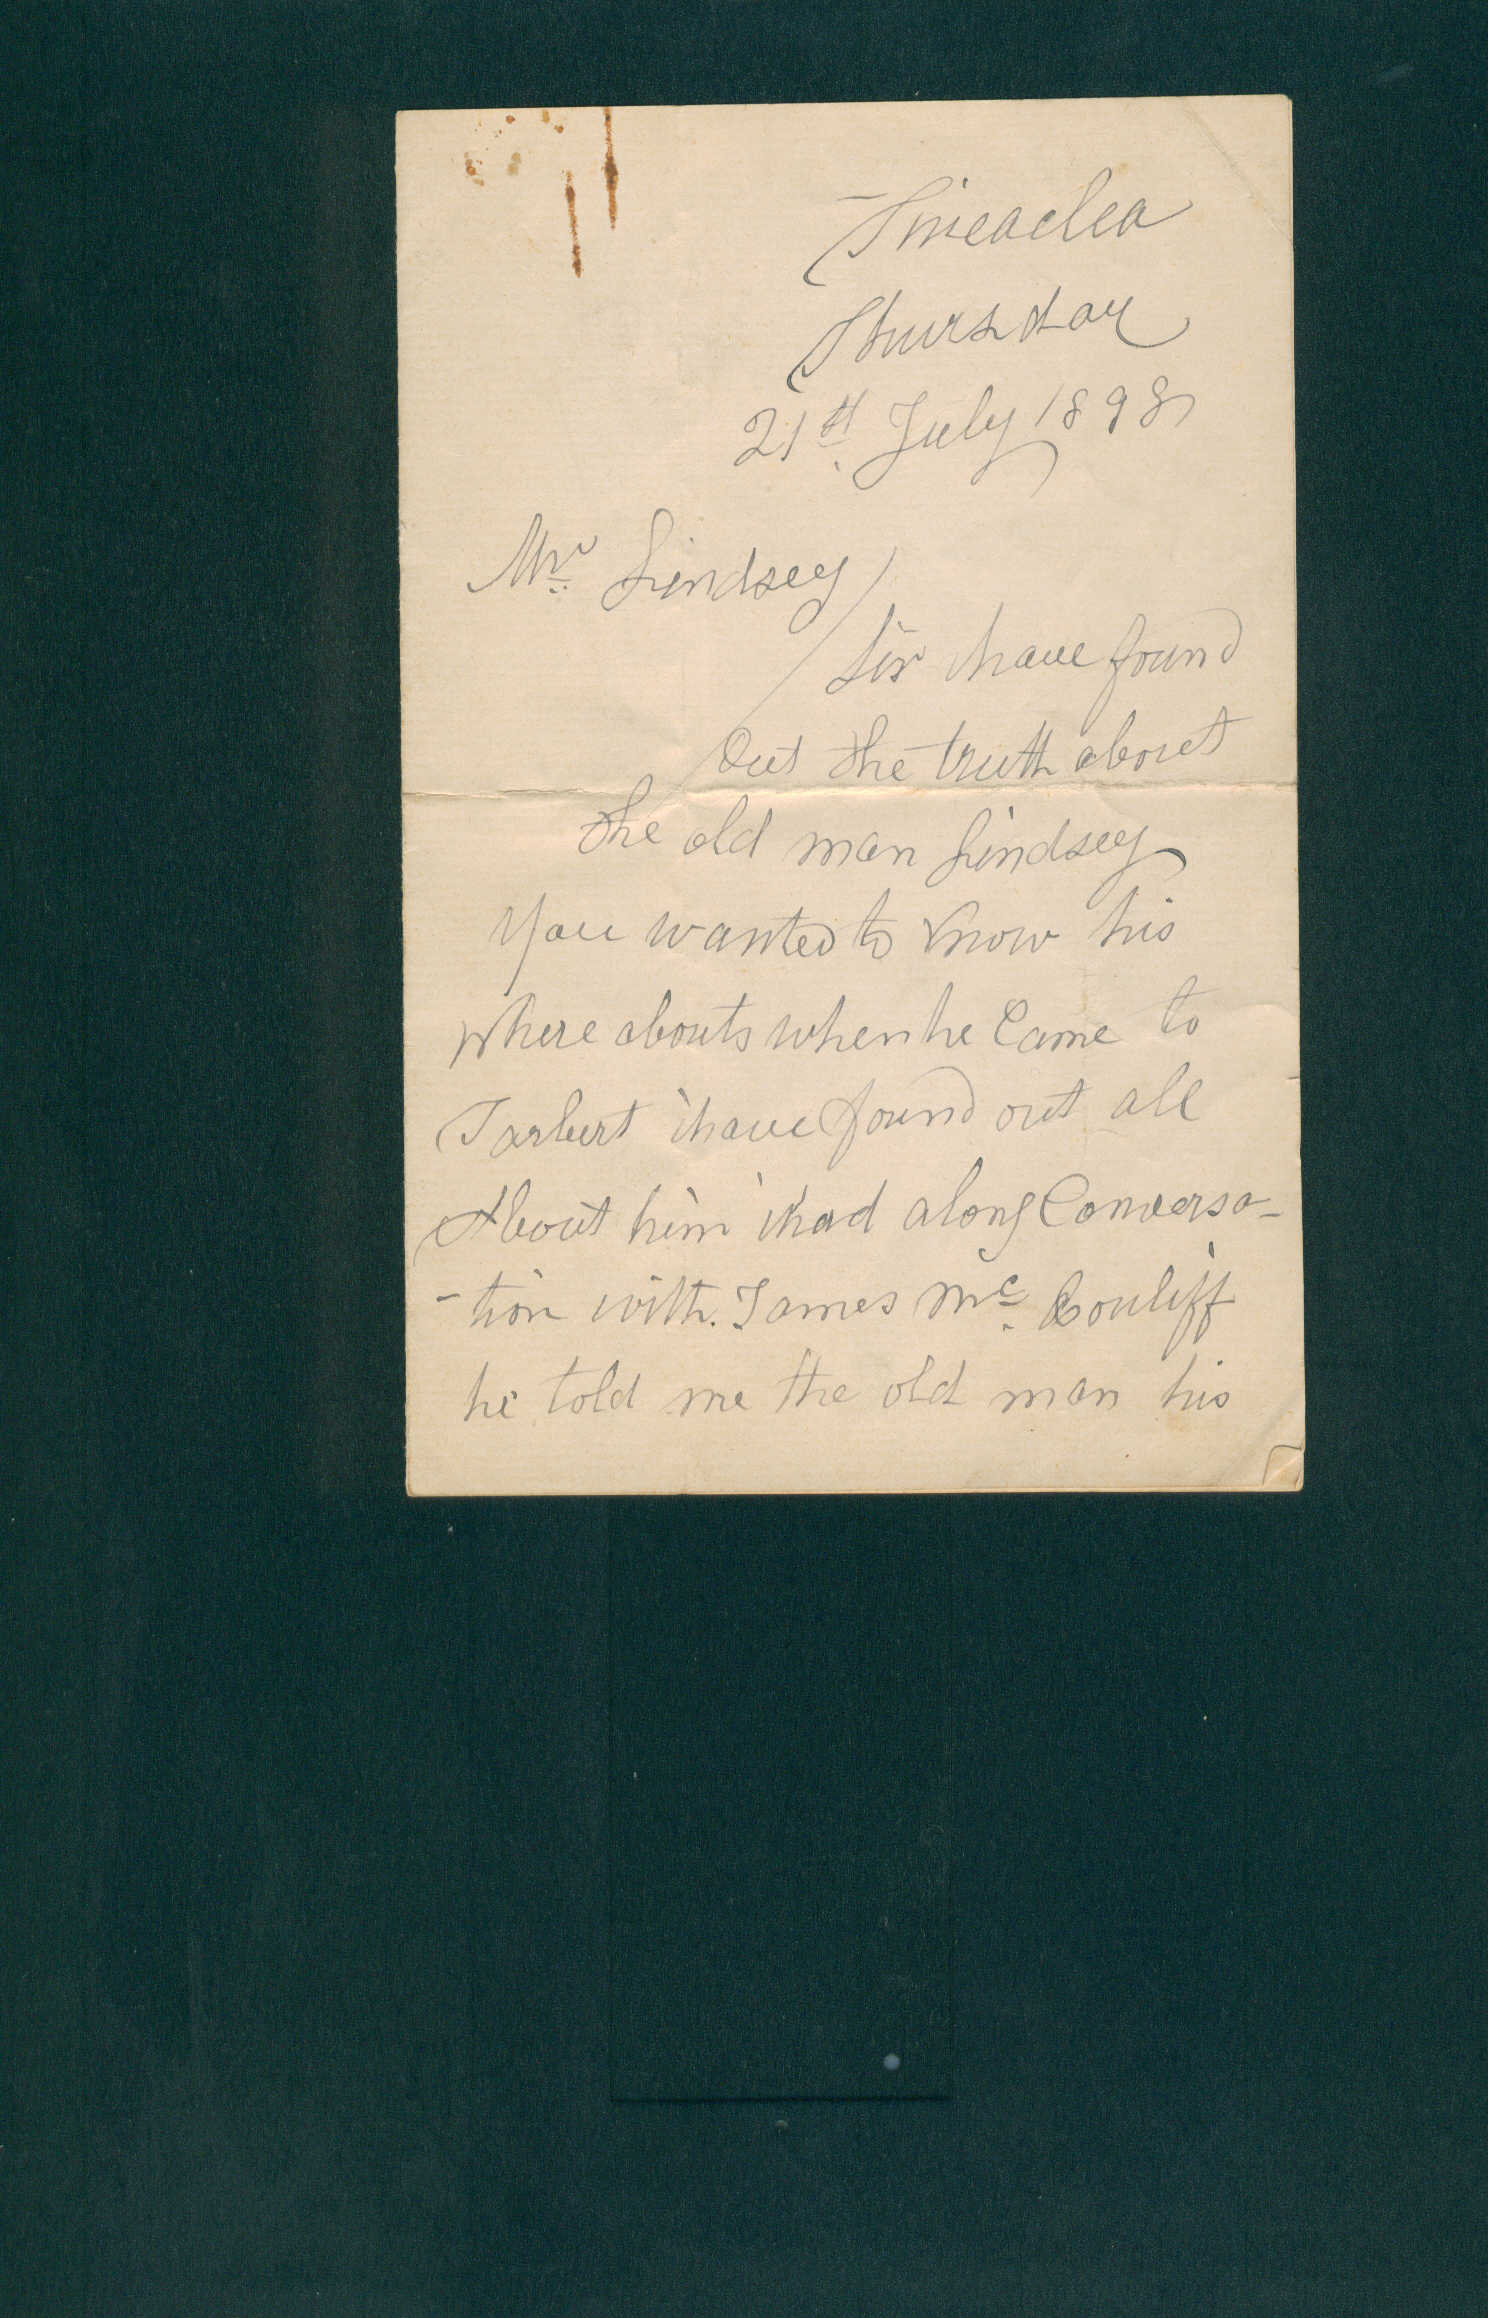 Tineaclea
Thursday
21st July 1898
Mr Lindsey
Sir ihave found
Out the truth about
the old man Lindsey
You wanted to know his
where abouts when he Came to
Tarbert ihave found out all
About him ihad along Conversa-
-tion with. James Mc Couliff
he told me the old man his